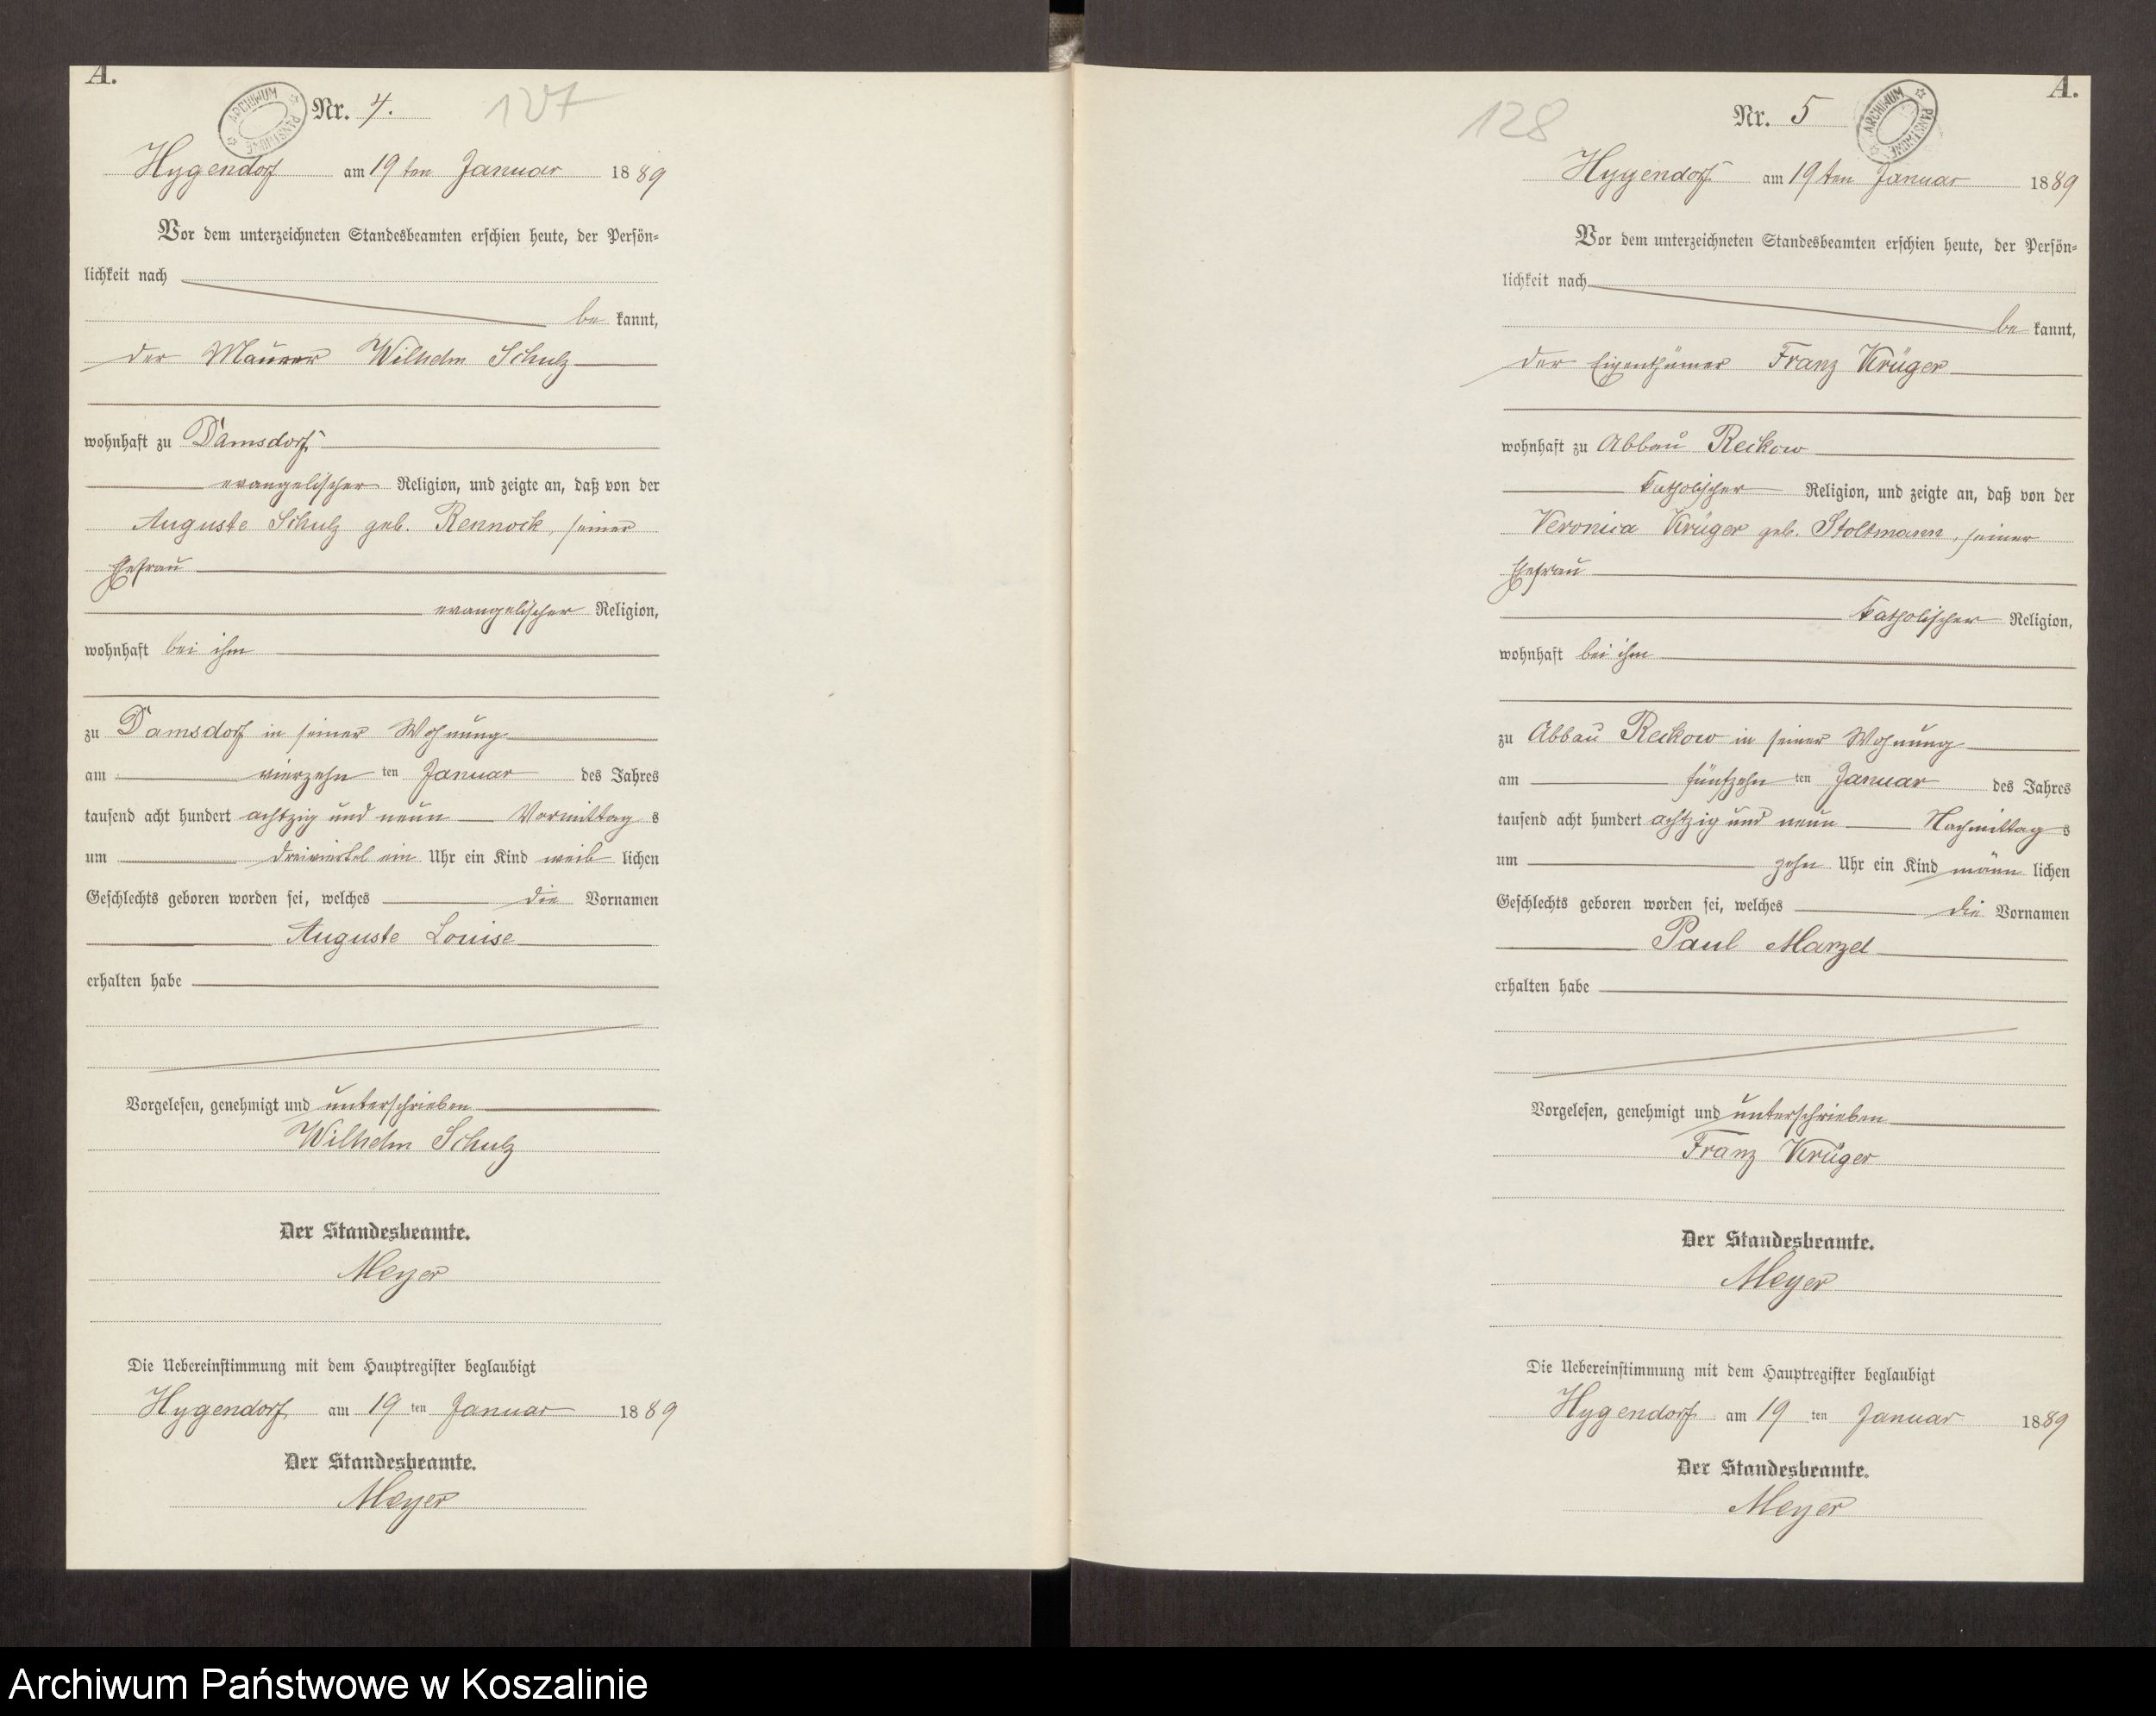 A.
ARCHIWUM PAŃSTWOWE
Nr. 4.
127
Hygendorf am 19ten Januar 1889
Vor dem unterzeichneten Standesbeamten erschien heute, der Persön-
lichkeit nach
be kannt,
der Maurer Wilhelm Schulz
wohnhaft zu Damsdorf
evangelischer Religion, und zeigte an, daß von der
Auguste Schulz geb. Rennock, seiner
Ehefrau
evangelischer Religion,
wohnhaft bei ihm
zu Damsdorf in seiner Wohnung
am vierzehn ten Januar des Jahres
tausend acht hundert achtzig und neun Vormittag s
um dreiviertel ein Uhr ein Kind weib lichen
Geschlechts geboren worden sei, welches die Vornamen
Auguste Louise
erhalten habe
Vorgelesen, genehmigt und unterschrieben
Wilhelm Schulz
Der Standesbeamte.
Meyer
Die Uebereinstimmung mit dem Hauptregister beglaubigt
Hygendorf am 19 ten Januar 1889
Der Standesbeamte.
Meyer
A.
128
Nr. 5
ARCHIWUM PAŃSTWOWE
Hygendorf am 19ten Januar 1889
Vor dem unterzeichneten Standesbeamten erschien heute, der Persön-
lichkeit nach
be kannt,
der Eigenthümer Franz Krüger
wohnhaft zu Abbau Reckow
katholischer Religion, und zeigte an, daß von der
Veronica Krüger geb. Stoltmann, seiner
Ehefrau
katholischer Religion,
wohnhaft bei ihm
zu Abbau Reckow in seiner Wohnung
am fünfzehn ten Januar des Jahres
tausend acht hundert achtzig und neun Nachmittag s
um zehn Uhr ein Kind männ lichen
Geschlechts geboren worden sei, welches die Vornamen
Paul Marzel
erhalten habe
Vorgelesen, genehmigt und unterschrieben
Franz Krüger
Der Standesbeamte.
Meyer
Die Uebereinstimmung mit dem Hauptregister beglaubigt
Hygendorf am 19 ten Januar 1889
Der Standesbeamte.
Meyer
Archiwum Państwowe w Koszalinie